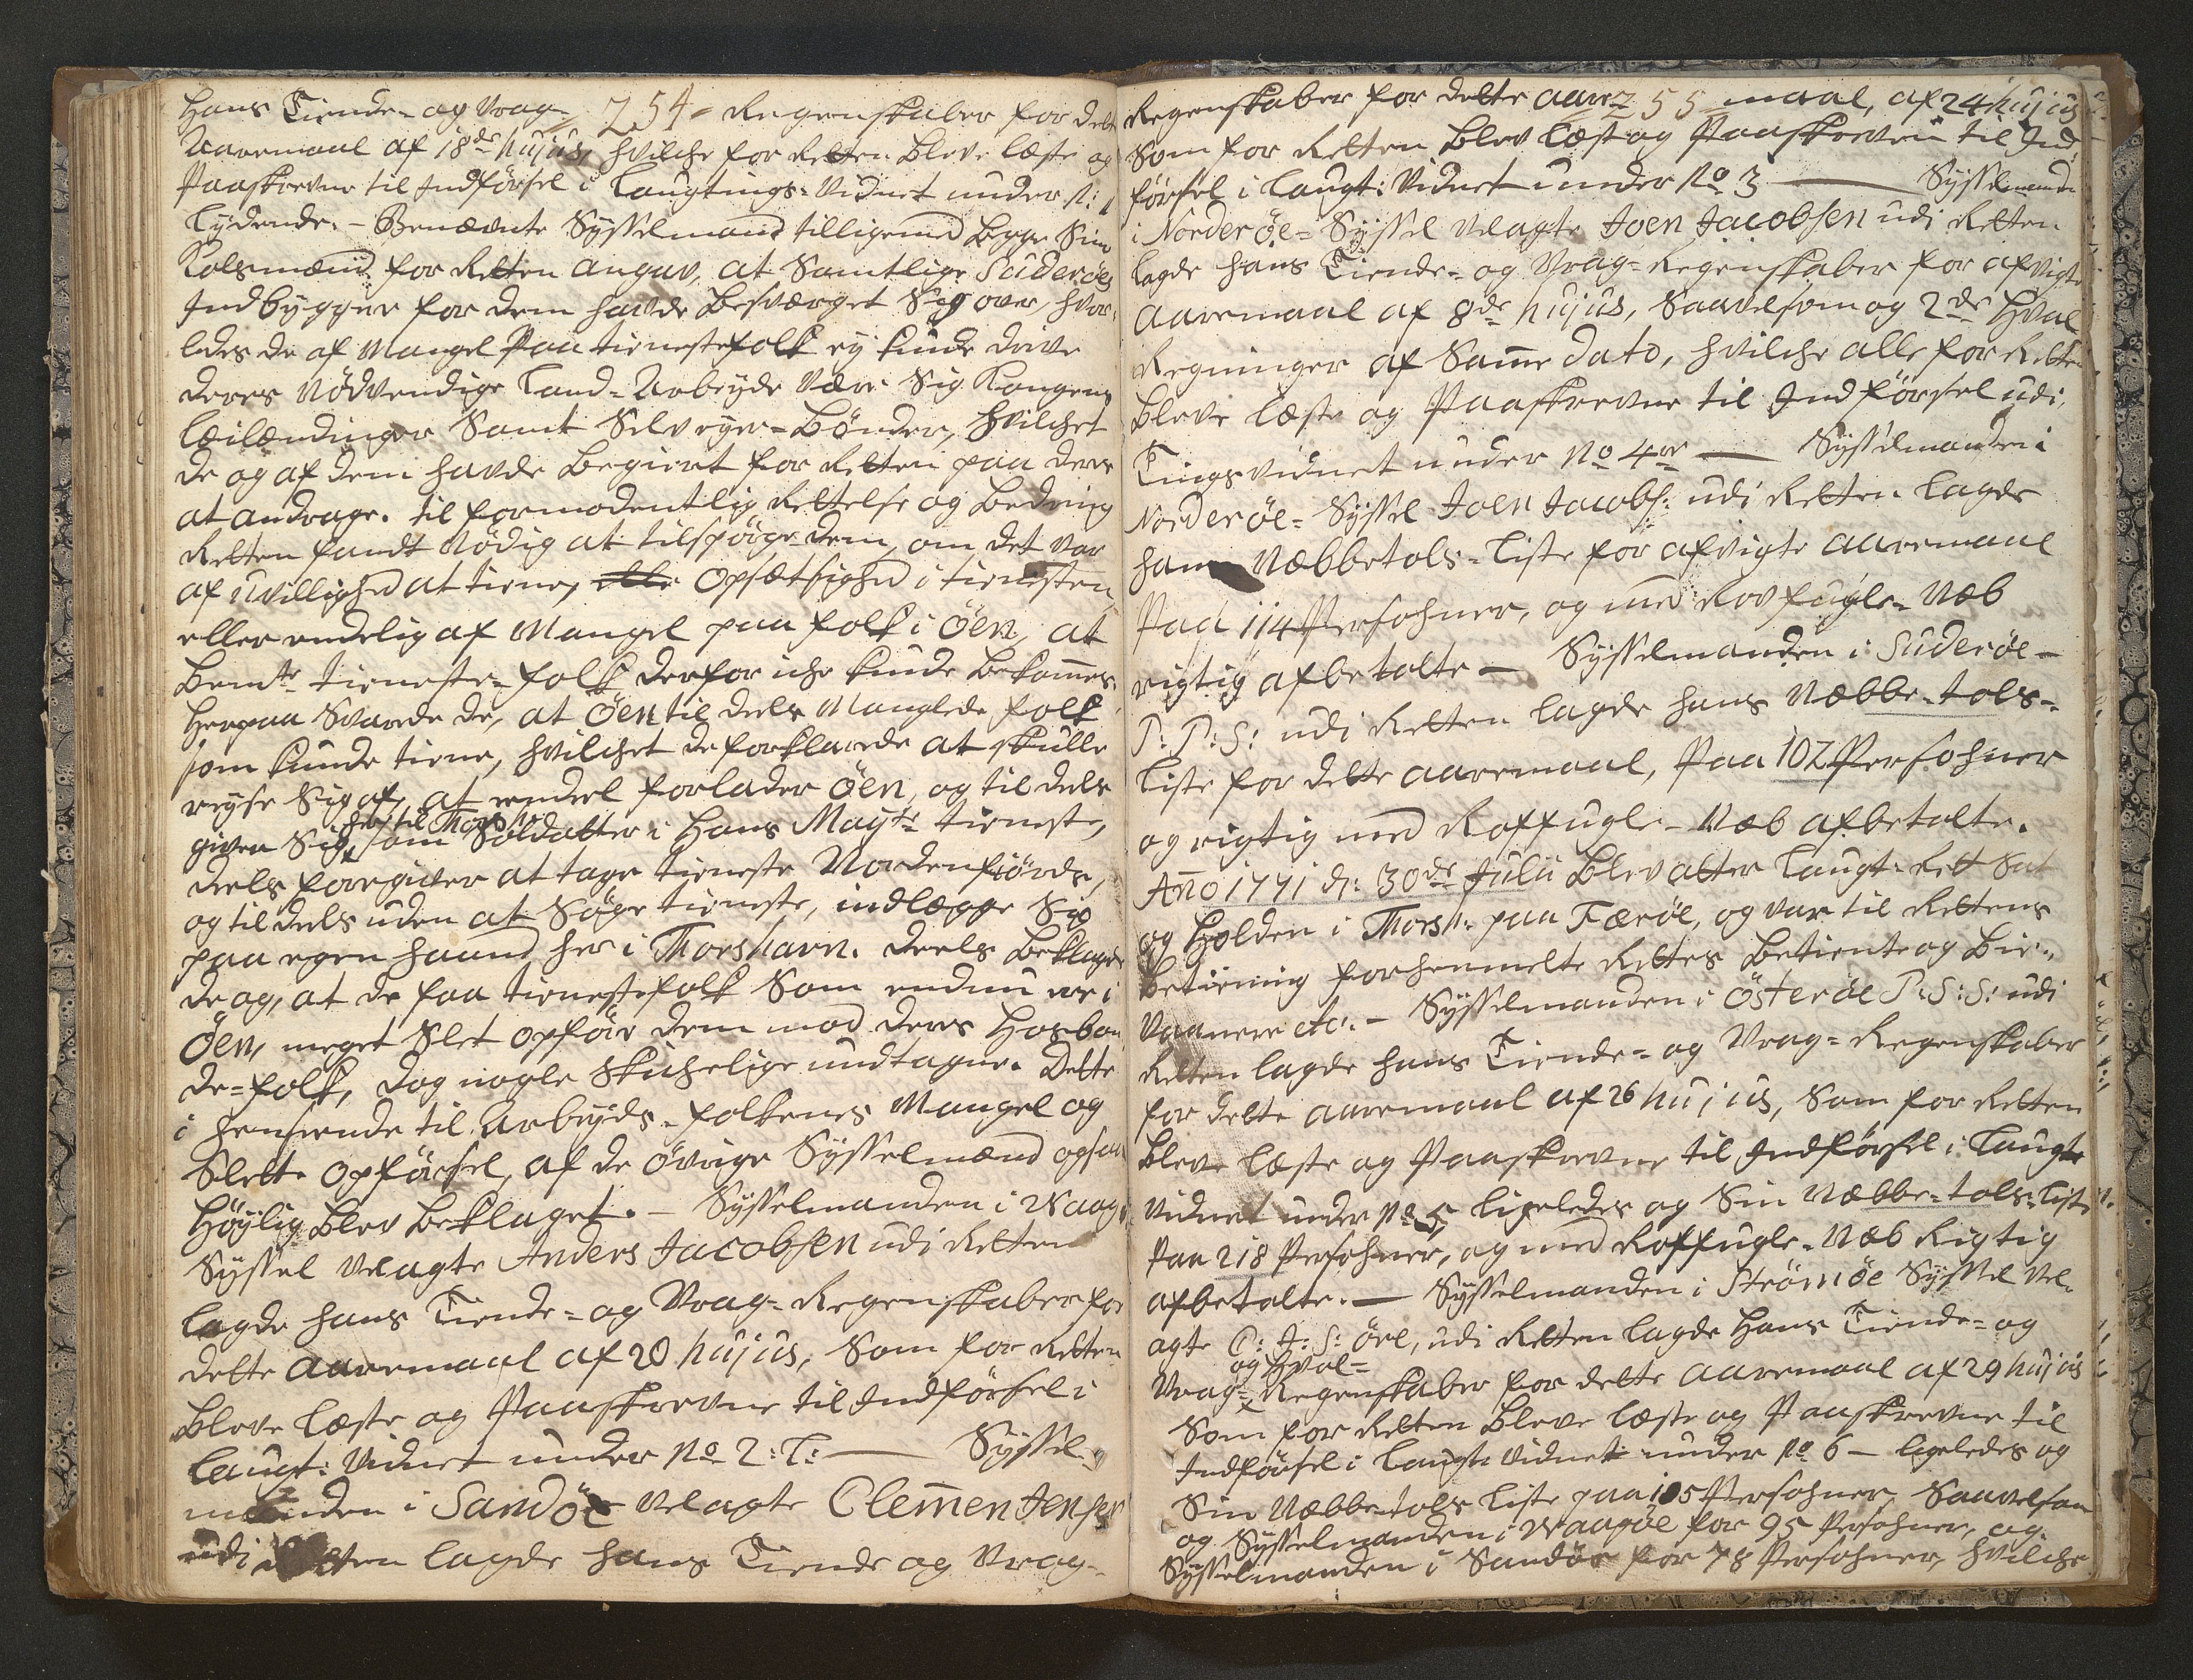 254
Hans Tiende- og Vrag- Regenskaber for dette
Aaremaal af 18de hujus, hvilche for Retten bleve læste og
Paaskrevne til Indførsel i Laugtings-Vidnet under N: 1
Lydende. - Benævnte Sysselmand tilligemed begge Sine
Kolsmænd for Retten angav, at Samtlige Süderøes
Indbyggere for dem havde besværget Sig over, hvor-
ledes de af Mangel paa tienestefolk ey kunde drive
deres Nödvendige Land-Arbeyde være Sig Kongens
Leilændinger Samt Selveyer-Bönder, hvilchet
de og af dem havde begiert for Retten paa deres
at andrage. til formodentlig Rettelse og bedring
Retten fandt Nödig at tilspörge dem, om det var
af uvillighed at tiene, elle Opsætsighed i tienesten,
eller endelig af Mangel paa folk i Öen, at
bemte tieneste-folk derfor iche kunde bekommes.
Herpaa Svarede de, at Öen til deels Manglede folk
som kunde tiene, hvilchet de forklarede at skulle
reyse Sig af, at endeel forlader Öen, og til deels
her til Thorsh:
given Sig som Soldatter i Hans Mayts tieneste,
deels foregiver at tage tieneste Nordenfiörds,
og til deels uden at Söge tieneste, indlægge Sig
paa egen haand her i Thorshavn. deels beklagede
de og, at de faa tienestefolk Som endnu ere i
Öen, meget Slet opföre dem mod deres Hosbon-
de-folk, dog nogle Skichelige undtagne. Dette
i henseende til Arbeyds-folkenes Mangel og
Slette Opförsel, af de övrige Sysselmænd ogsaa
Höylig blev beklaget. - Sysselmanden i Waagöe
Syssel Velagte Anders Jacobsen udi Retten
lagde hans Tiende- og Vrag-Regenskaber for
dette aaremaal af 20 hujus, Som for Retten
bleve læste og Paaskrevne til Indförsel i
Laugt: Vidnet under No 2: L: — Syssel-
manden i Sandöe Velagte Clemen Jensen
udi Retten lagde hans Tiende og Vrag-
255
Regenskaber for dette aaremaal, af 24 hujus
Som for Retten blev læst og Paaskreven til Ind-
försel i Laugt: Vidnet under No 3 — Sysselmanden
i Norderöe-Syssel Velagte Joen Jacobsen udi Retten
lagde hans Tiende- og Vrag-Regenskaber for afvigte
Aaremaal af 8de hujus, Saavelsom og 2de Hval
Regninger af Same dato, hvilche alle for Retten
bleve læste og Paaskrevne til Indförsel udi
Tingsvidnet under No 4re — Sysselmanden i
Norderöe-Syssel Joen Jacobs: udi Retten lagde
hans Næbbetols-Liste for afvigte aaremaal
Paa 114 Persohner, og med Rovfugle-Næb
rigtig afbetalte — Sysselmanden i Süderöe -
P: P: S: udi Retten lagde hans Næbbe-tols-
Liste for dette aaremaal, Paa 102 Persohner
og rigtig med Roffugle-Næb afbetalte.
Año 1771 d: 30de Julii blev atter Laugt-Rett Sat
og Holden i Thorsh: paa Færöe, og var til Rettens
betiening forhenmelte Rettes betiente og bie-
vaanere etc. - Sysselmanden i Österöe P: S: S: udi
Retten lagde hans Tiende- og Vrag-Regenskaber
for dette aaremaal af 26 hujus, Som for Retten
bleve læste og Paaskrevne til Indförsel i Laugts
Vidnet under No 5 ligeledes og Sin Næbbe-tols-Liste
Paa 218 Persohner, og med Roffugle-Næb Rigtig
afbetalte. — Sysselmanden i Strömöe Syssel Vel-
agte C: J: S: öre, udi Retten lagde Hans Tiende- og
og Hval-
Vrag-Regenskaber for dette aaremaal af 29 hujus
Som for Retten bleve læste og Paaskrevne til
Indförsel i Laugts Vidnet under No 6 — ligeledes og
Sin Næbbe-tols Liste paa 105 Persohner, Saavelsom
og Sysselmanden i Waagöe for 95 Persohner, og
Sysselmanden i Sandöe for 78 Persohner, hvilche